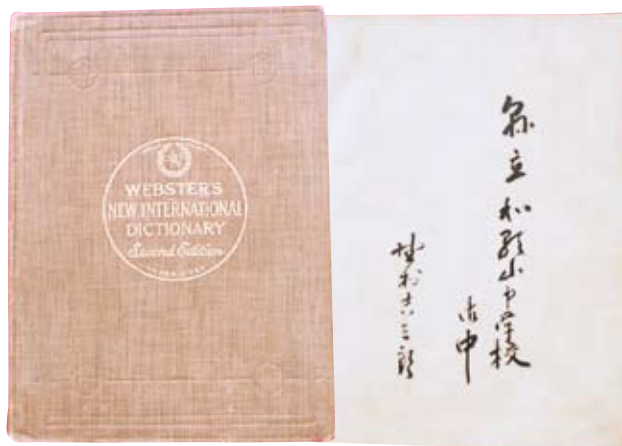 WEBSTER'S
NEW INTERNATIONAL
DICTIONARY
Second Edition
縣立和歌山中学校
御中
野村吉三郎